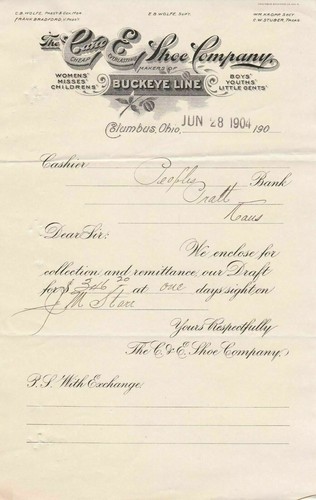 C.B. WOLFE, PREST & GEN. MGR.
FRANK BRADFORD, V. PREST.
E.B. WOLFE, SUPT.
WM. KROMM, SECY.
S.W. STUBER, TREAS.
The C and E Shoe Company.
CHEAP EVERLASTING
MAKERS OF
WOMENS' MISSES' CHILDRENS'
BUCKEYE LINE
BOYS' YOUTHS' LITTLE GENTS'
Columbus, Ohio, JUN 28 1904 190
Cashier Peoples Bank
Pratt
Kans
Dear Sir:
We enclose for
collection and remittance our Draft
for $ 346 20 at one days sight on
J M Starr
Yours Respectfully
The C. & E. Shoe Company.
P.S. With Exchange.